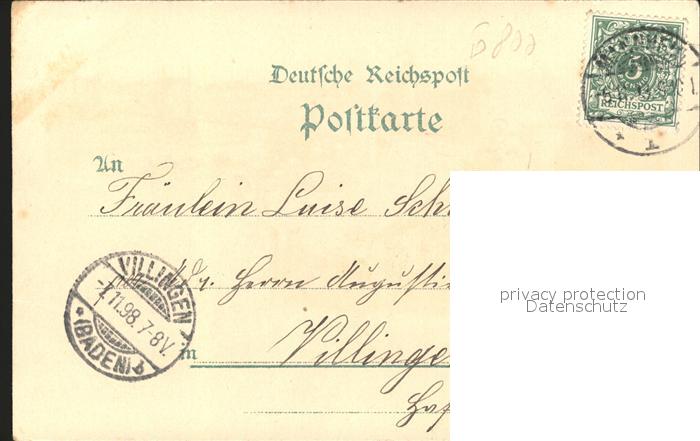 Deutsche Reichspost
Postkarte
5
REICHSPOST
An
Fräulein Luise Sch
Herrn Augusti
VILLINGEN
11.98.7-8V.
*(BADEN) b
in Villinge
privacy protection
Datenschutz